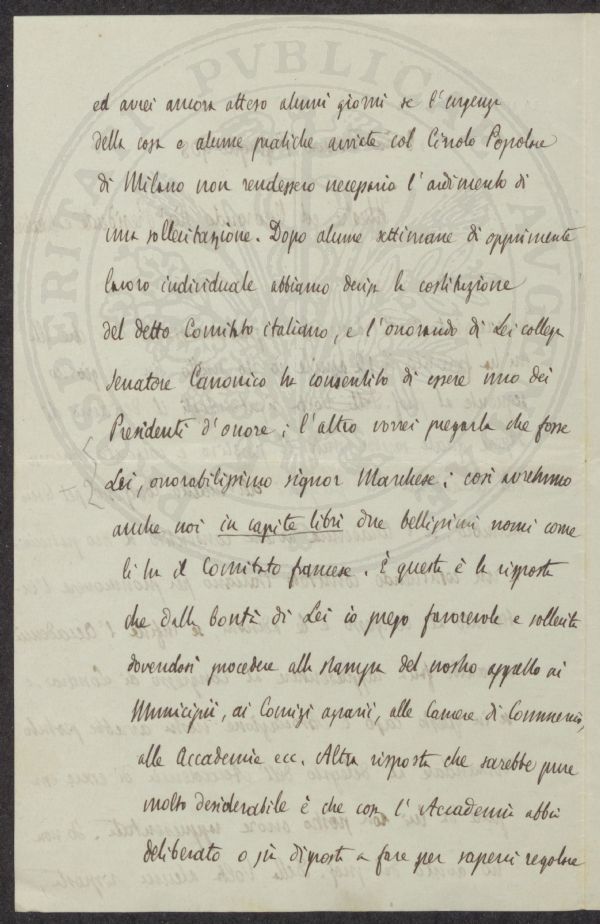 ed avrei ancora atteso alcuni giorni se l'urgenza
della cosa e alcune pratiche avviate col Circolo Popolare
di Milano non rendessero necessario l'ardimento di
una sollecitazione. Dopo alcune settimane di opprimente
lavoro individuale abbiamo decisa la costituzione
del detto Comitato italiano, e l'onorando di Lei collega
senatore Canonico ha consentito di essere uno dei
Presidenti d'onore; l'altro vorrei pregarla che fosse
Lei, onorabilissimo signor Marchese; così avremmo
anche noi in capite libri due bellissimi nomi come
li ha il Comitato francese. E questa è la risposta
che dalla bontà di Lei io prego favorevole e sollecita
dovendosi procedere alla stampa del nostro appello ai
Municipii, ai Comizi agrarii, alle Camere di Commercio,
alle Accademie ecc. Altra risposta che sarebbe pure
molto desiderabile è che cosa l'Accademia abbia
deliberato o sia disposta a fare per sapermi regolare